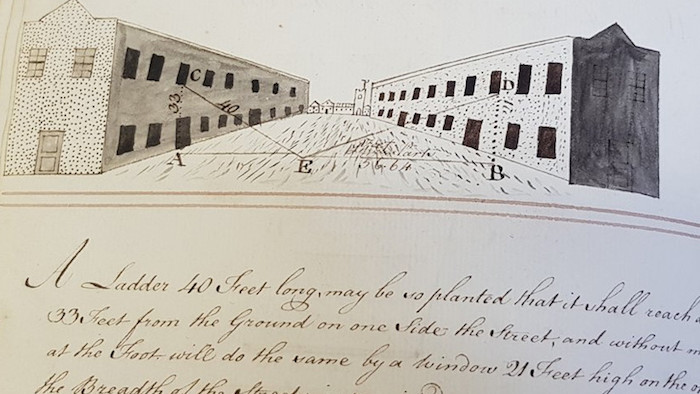 C
D
33
40
A
E
B
A Ladder 40 Feet long, may be so planted that it shall reach a
33 Feet from the Ground on one Side the Street, and without m
at the Foot will do the same by a Window 21 Feet high on the o
the Breadth of the Street